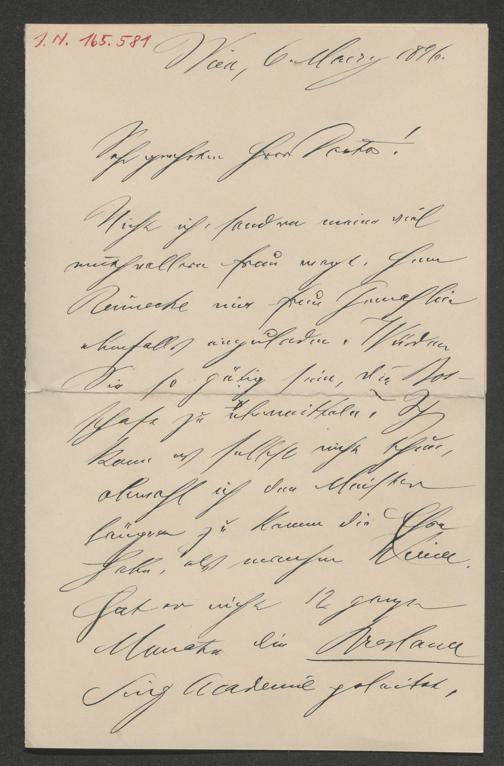 J. N. 165.581
Wien, 6. März 1896.
Sehr geehrter Herr Doctor!
Nicht ich, sondern meine viel
muthvollere Frau wagt, Herrn
Reinecke mit Frau Gemahlin
ebenfalls einzuladen. Würden
Sie so gütig sein, die Bot-
schaft zu übermitteln? Ich
kann es selbst nicht thun,
obwohl ich den Meister
länger zu kennen die Ehre
habe, als mancher
Hat er nicht 12 ganze
Monate die Breslauer
Sing Academie geleitet,